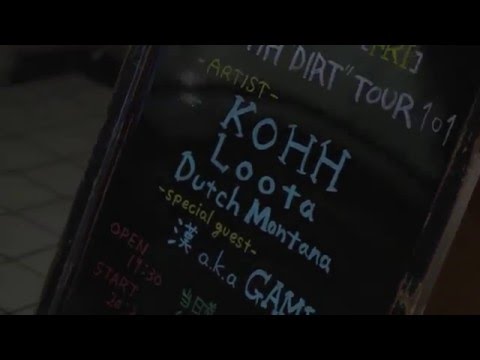 [FRI]
DIRT" TOUR 101
-ARTIST-
KOHH
Loota
Dutch Montana
-special guest-
漢 a.k.a GAMI
OPEN
19:30
START
当日券